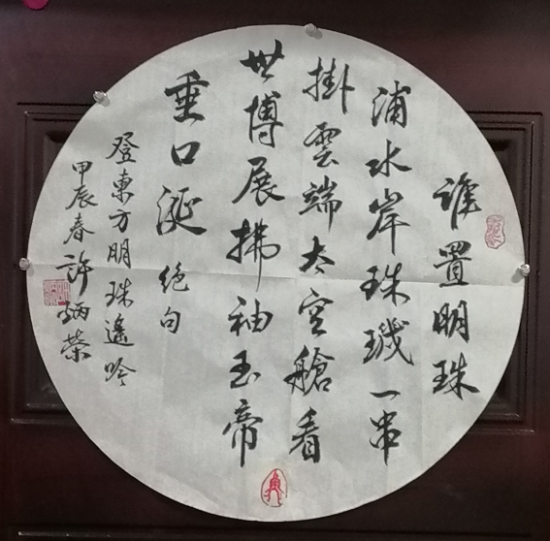 谁置明珠
浦水岸珠玑一串
掛雲端太空艙看
世博展拂袖玉帝
垂口涎 绝句
登東方明珠遥吟
甲辰春 许炳荣